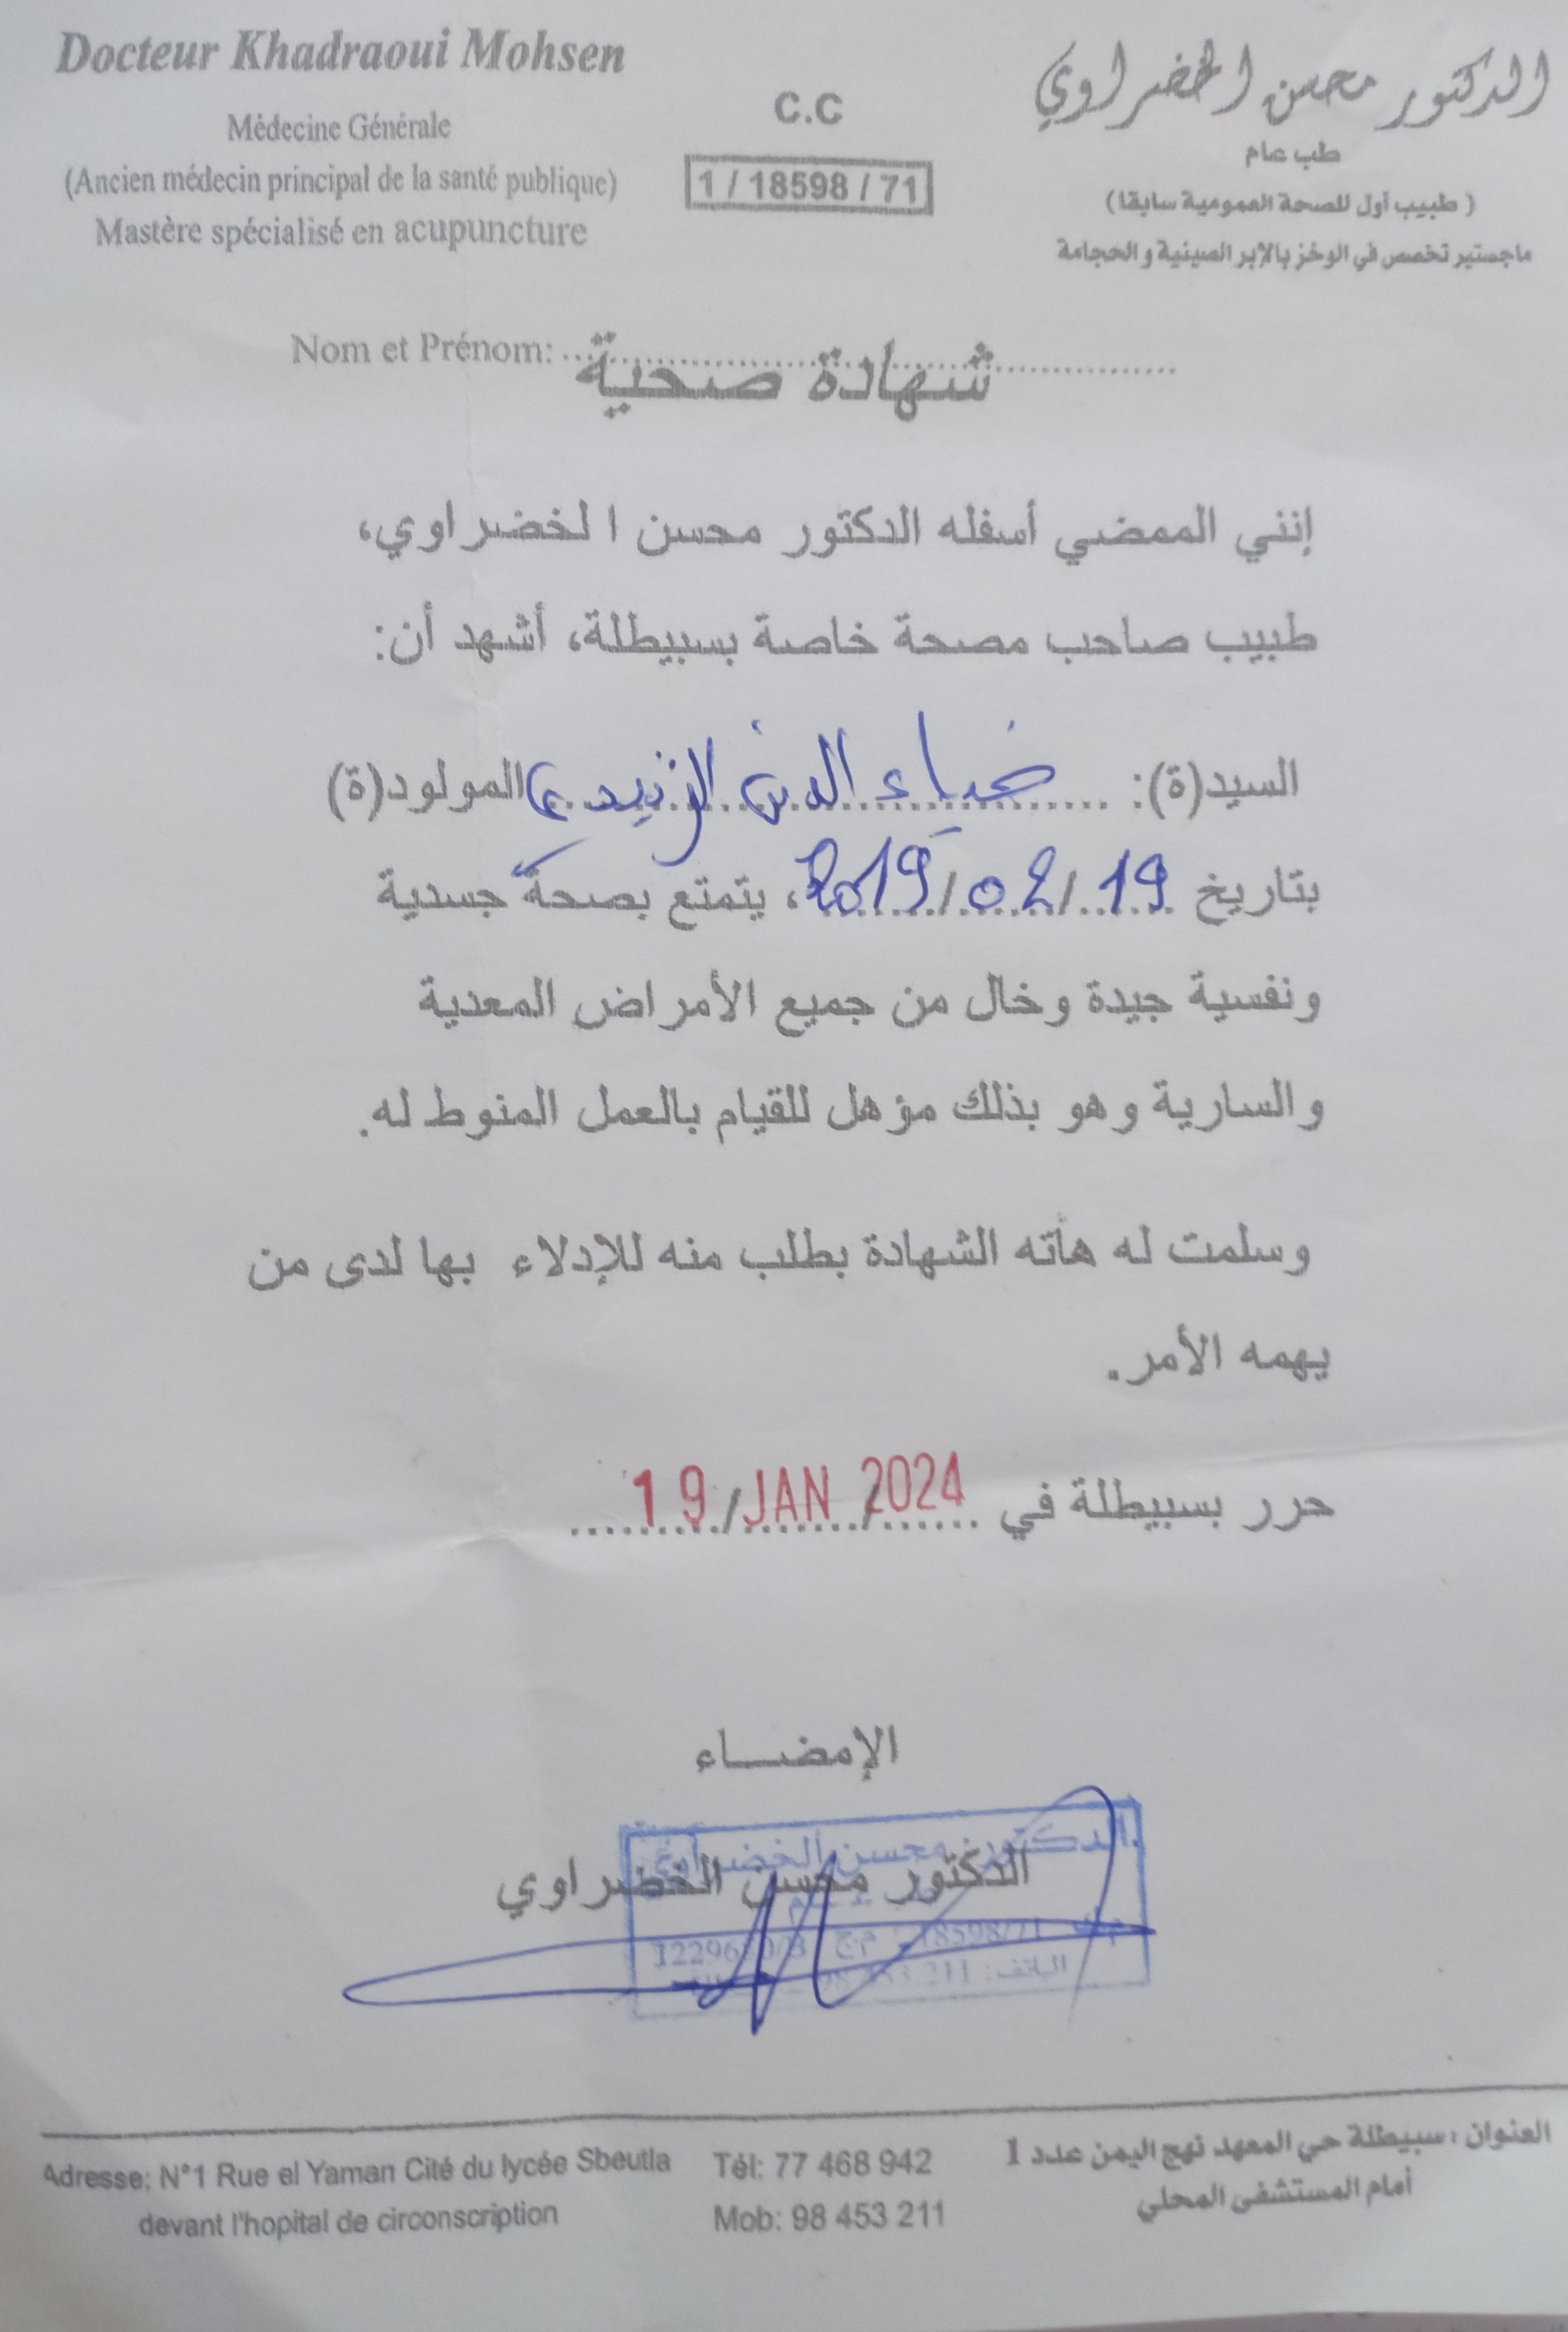 Docteur Khadraoui Mohsen
Médecine Générale
(Ancien médecin principal de la santé publique)
Mastère spécialisé en acupuncture
C.C
1 / 18598 / 71
الدكتور محسن الخضراوي
طب عام
( طبيب أول للصحة العمومية سابقا )
ماجستير تخصص في الوخز بالإبر الصينية و الحجامة
Nom et Prénom:
شهادة صحية
إنني الممضي أسفله الدكتور محسن الخضراوي،
طبيب صاحب مصحة خاصة بسبيطلة، أشهد أن:
السيد(ة): ضياء الدين الزيدي المولود(ة)
بتاريخ 19/02/2019، يتمتع بصحة جسدية
ونفسية جيدة وخال من جميع الأمراض المعدية
والسارية وهو بذلك مؤهل للقيام بالعمل المنوط له.
وسلمت له هاته الشهادة بطلب منه للإدلاء بها لدى من
يهمه الأمر.
حرر بسبيطلة في 19/JAN/2024
الإمضاء
الدكتور محسن الخضراوي
الدكتور محسن الخضراوي
18598/71
الهاتف: 98.453.211
Adresse: N°1 Rue el Yaman Cité du lycée Sbeutla
devant l'hopital de circonscription
Tél: 77 468 942
Mob: 98 453 211
العنوان : سبيطلة حي المعهد نهج اليمن عدد 1
أمام المستشفى المحلي